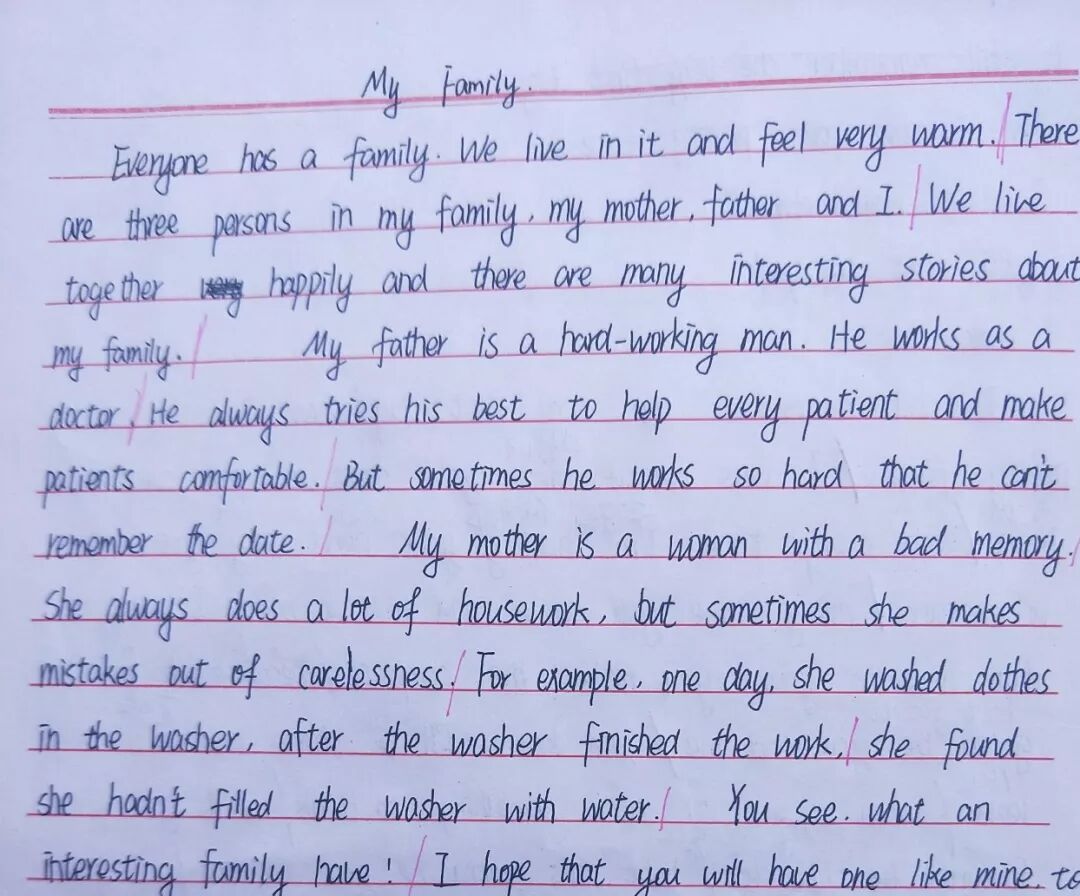 My Family.
Everyone has a family. We live in it and feel very warm. There
are three persons in my family, my mother, father and I. We live
together happily and there are many interesting stories about
my family. My father is a hard-working man. He works as a
doctor, He always tries his best to help every patient and make
patients comfortable. But sometimes he works so hard that he can't
remember the date. My mother is a woman with a bad memory.
She always does a lot of housework, but sometimes she makes
mistakes out of carelessness. For example, one day, she washed clothes
in the washer, after the washer finished the work, she found
she hadn't filled the washer with water. You see. what an
interesting family have! I hope that you will have one like mine, to